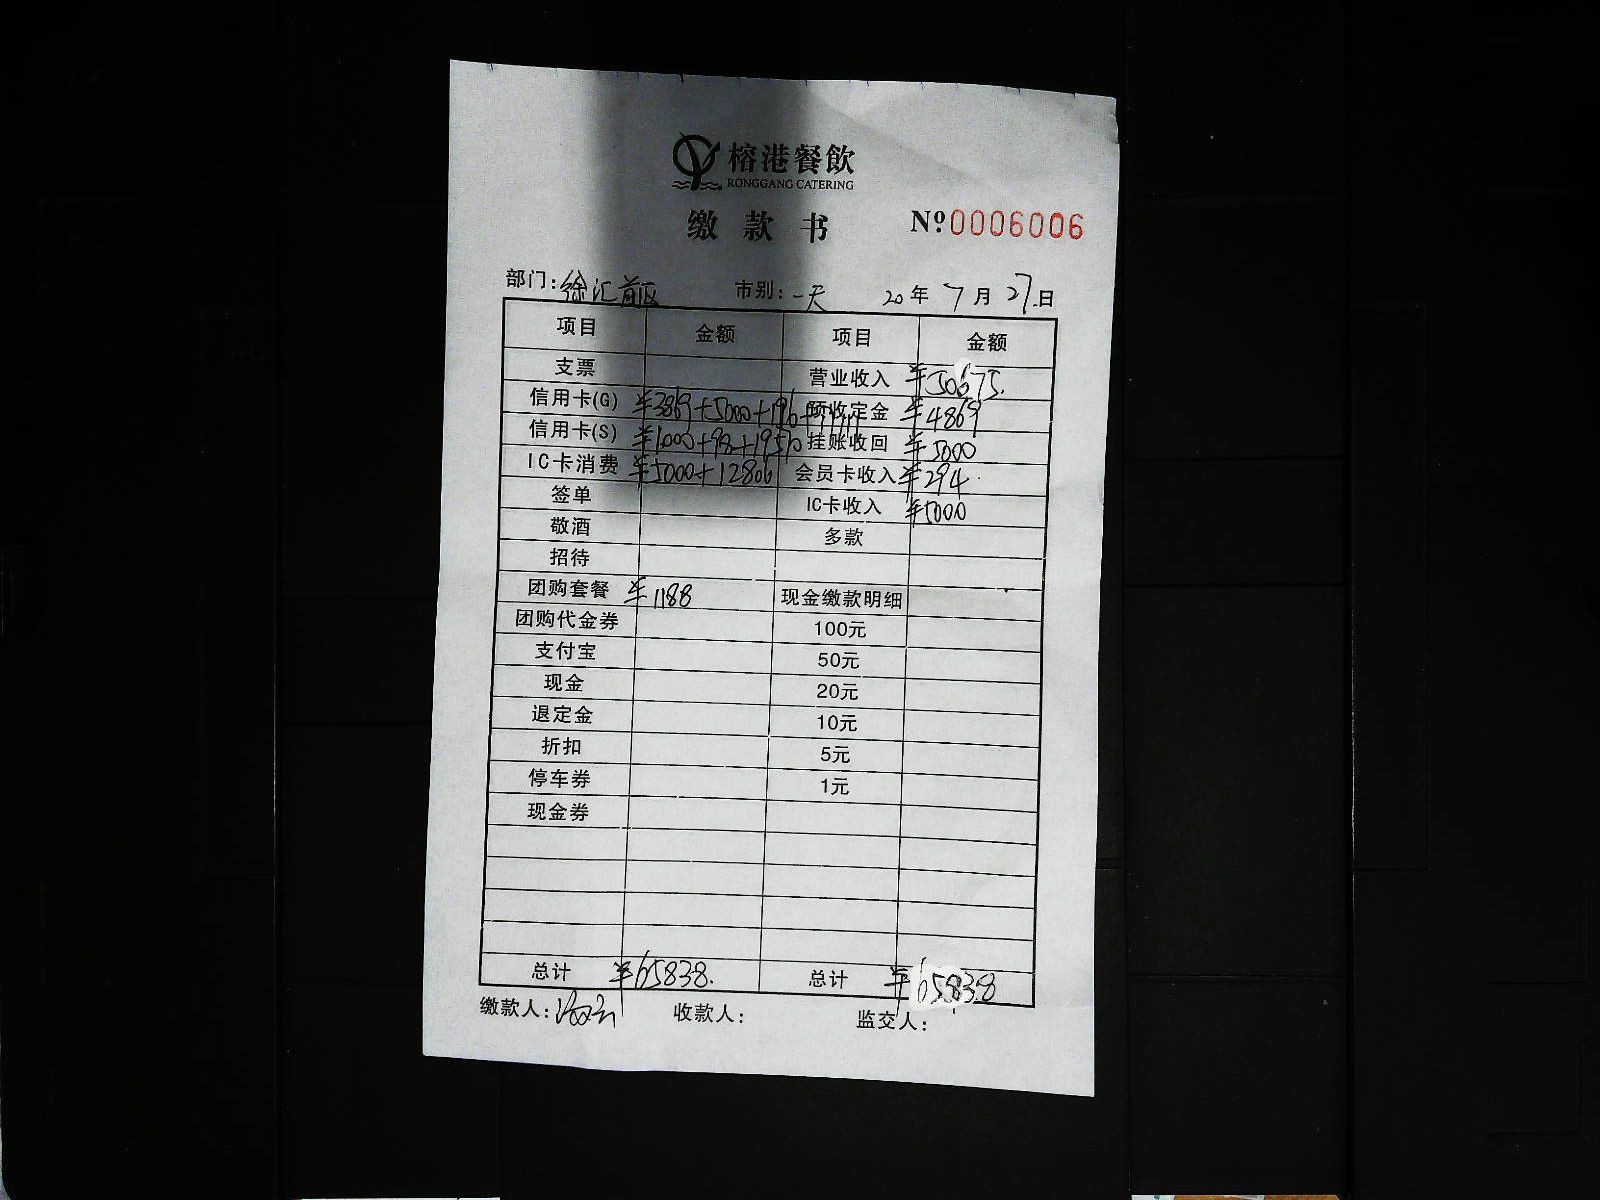 榕港餐飲
RONGGANG CATERING
缴款书 Nº:0006006
部门:徐汇前区 市别:一天 20年7月27日
项目 金额 项目 金额
支票 营业收入 ¥50675.
信用卡(G) ¥3869+5000+196+17111 预收定金 ¥4869
信用卡(S) ¥1000+98+19570 挂账收回 ¥5000
IC卡消费 ¥5000+12806 会员卡收入 ¥294.
签单 IC卡收入 ¥5000
敬酒 多款
招待
团购套餐 ¥1188 现金缴款明细
团购代金券 100元
支付宝 50元
现金 20元
退定金 10元
折扣 5元
停车券 1元
现金券
总计 ¥65838. 总计 ¥65838
缴款人: 收款人: 监交人: